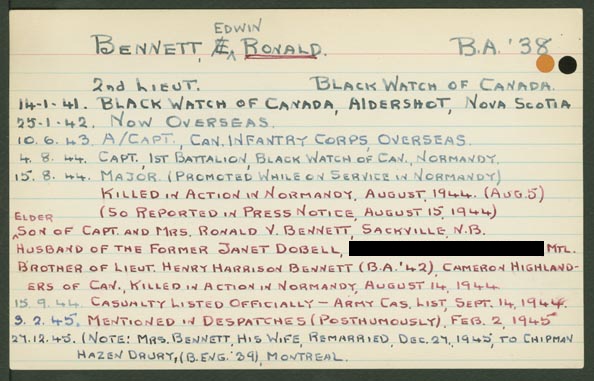 EDWIN
BENNETT, E. RONALD. B.A. '38
2nd LIEUT. BLACK WATCH OF CANADA.
14-1-41. BLACK WATCH OF CANADA, ALDERSHOT, NOVA SCOTIA
25-1-42. NOW OVERSEAS.
10.6.43. A/CAPT., CAN. INFANTRY CORPS, OVERSEAS.
4.8.44. CAPT., 1ST BATTALION, BLACK WATCH OF CAN., NORMANDY.
15.8.44. MAJOR. (PROMOTED WHILE ON SERVICE IN NORMANDY)
KILLED IN ACTION IN NORMANDY, AUGUST, 1944. (AUG. 5)
(SO REPORTED IN PRESS NOTICE, AUGUST 15, 1944)
ELDER
SON OF CAPT. AND MRS. RONALD V. BENNETT, SACKVILLE, N.B.
HUSBAND OF THE FORMER JANET DOBELL, MTL.
BROTHER OF LIEUT. HENRY HARRISON BENNETT (B.A. '42), CAMERON HIGHLAND-
ERS OF CAN., KILLED IN ACTION IN NORMANDY, AUGUST 14, 1944
15.9.44. CASUALTY LISTED OFFICIALLY – ARMY CAS. LIST, SEPT. 14, 1944.
9.2.45. MENTIONED IN DESPATCHES (POSTHUMOUSLY), FEB. 2, 1945
27.12.45. (NOTE: MRS. BENNETT, HIS WIFE, REMARRIED, DEC. 27, 1945, TO CHIPMAN
HAZEN DRURY, (B.ENG. '39), MONTREAL.